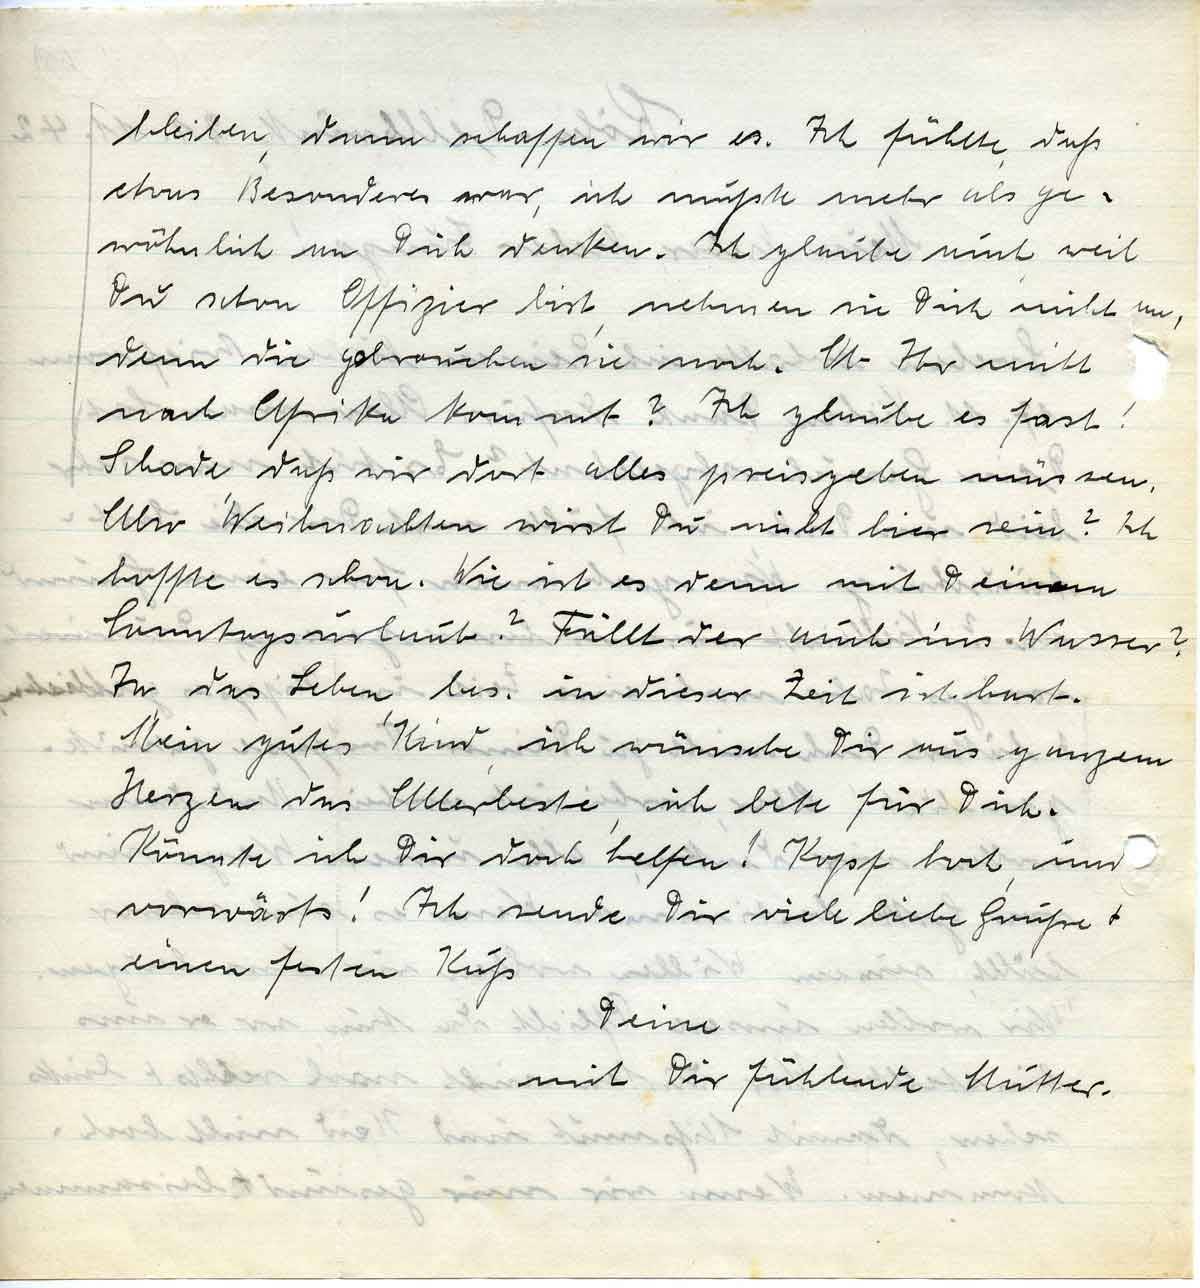 bleiben, dann schaffen wir es. Ich fühlte, daß
etwas Besonderes war, ich mußte mehr als ge-
wöhnlich an Dich denken. Ich glaube auch, weil
Du schon Offizier bist, nehmen sie Dich nicht an,
denn die gebrauchen sie noch. Ob Ihr nicht
nach Afrika kommt? Ich glaube es fast!
Schade, daß wir dort alles preisgeben müssen.
Also Weihnachten wirst Du nicht hier sein? Ich
hoffte es schon. Wie ist es denn mit Deinem
Sonntagsurlaub? Fällt der auch ins Wasser?
Ja, das Leben, bes. in dieser Zeit ist hart.
Mein gutes Kind, ich wünsche Dir aus ganzem
Herzen das Allerbeste, ich bete für Dich.
Könnte ich Dir doch helfen! Kopf hoch, und
vorwärts! Ich sende Dir viele liebe Grüße +
einen festen Kuß
Deine
mit Dir fühlende Mutter.